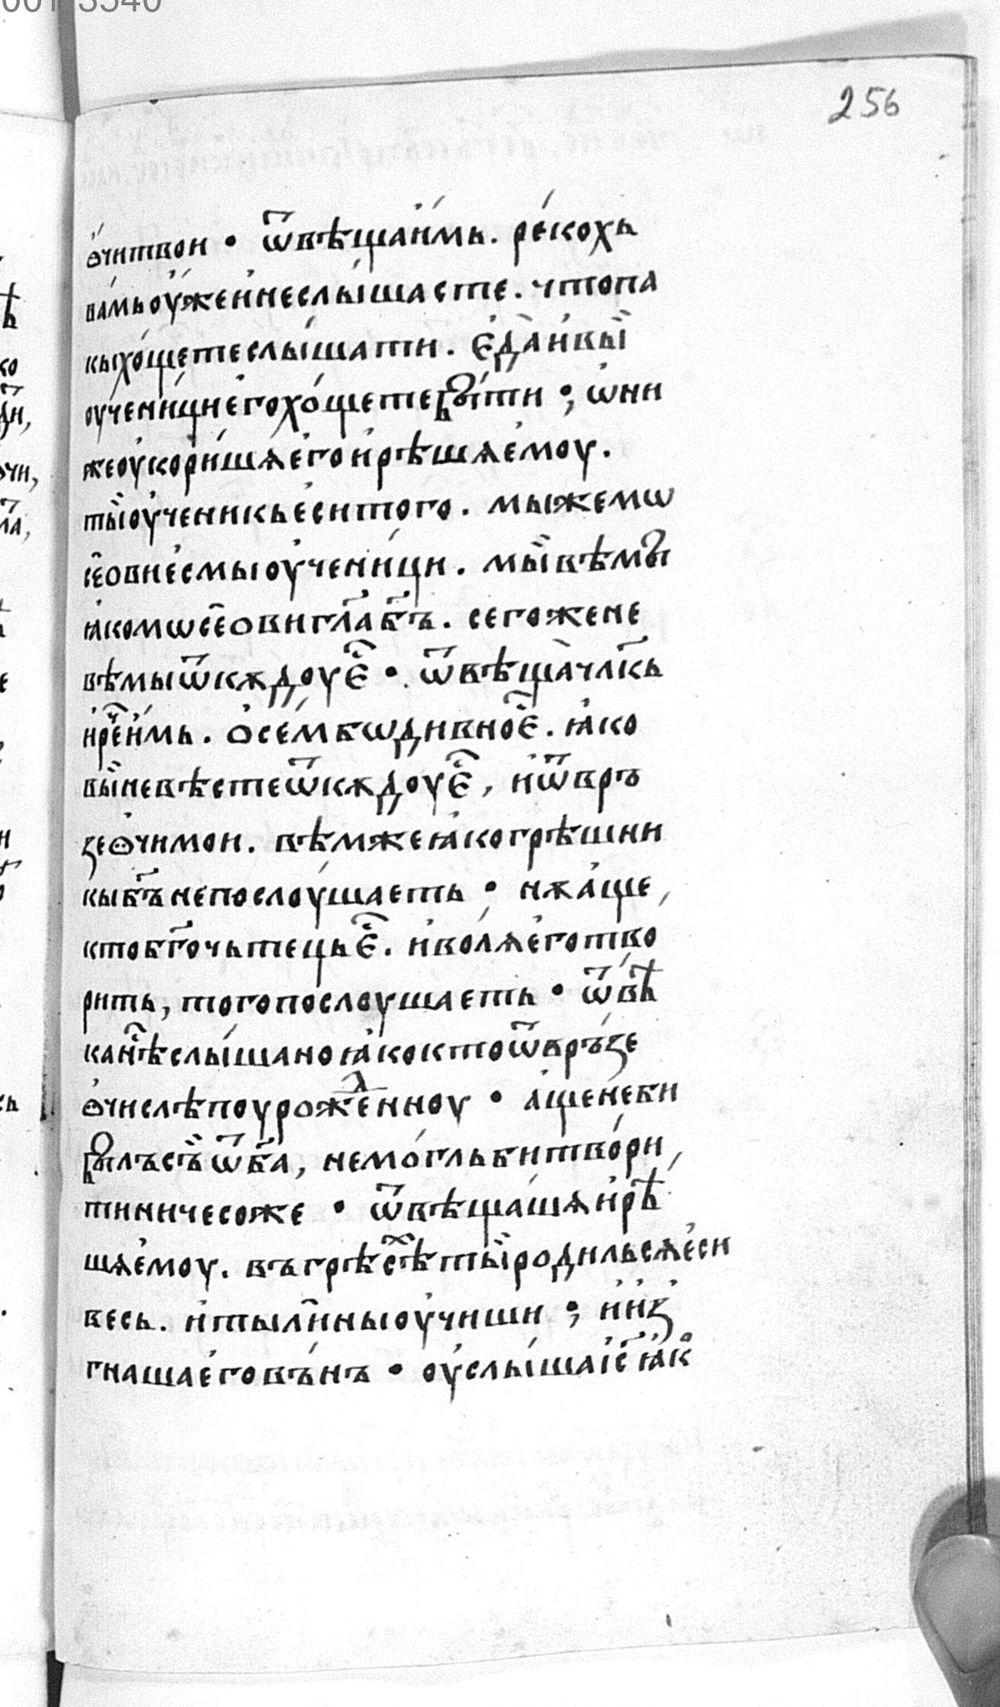 256
ѻ҆чи твои • ѿвѣща и҆мь. реко́хъ
ва́мь оу҆же и҆ не слы́шасте. что па
кы хо́щете слы́шати. є҆да̀ и҆ вы̀
оу҆чени́ци е҆го хо́щете бы́ти ; ѡ҆ни
же оу҆кори́шѧ е҆го и҆ рѣшѧ е҆моу.
ты̀ оу҆ченикь е҆си того. мы же мѡ
ѵ҆се́ови е҆смы оу҆чени́ци. мы̀ вѣмы
ꙗ҆ко мѡѵсе́ови гл҃а бг҃ъ. сего же не
вѣмы ѿкѫдоу є҆с҃. ѿвѣща̀ чл҃кь
и҆ рече҃ и҆̀мь. ѻ҆ сем бѡ дивно є҆с҃. ꙗ҆ко
вы̀ не вѣсте ѿкѫдоу є҆с҃, и҆ ѿвръ
зе ѻ҆чи мои. вѣмже ꙗ҆ко грѣшни
кы бг҃ъ не послоу́шаеть • нѫ а҆́ще,
кто бг҃очьтець є҆с҃. и҆ волѧ е҆го тво
рить, того послоушаеть • ѿ вѣ
ка нѣс҃ слы́шано ꙗ҆ко кто ѿвръ́зе
ѻ҆чи слѣпоу рожденноу • а҆ще не би
быль съ̀ ѿ бг҃а, не мо́гль би твори́
ти ничесоже • ѿвѣща́шѧ и҆ рѣ
шѧ е҆моу. въ грѣсѣх҃ ты̀ родиль сѧ е҆си
весь. и҆ ты ли ны оу҆чиши ; и҆ и҆з
гнаша е҆го въ́нъ • оу҆слы́ша і҆с҃ ꙗ҆ко